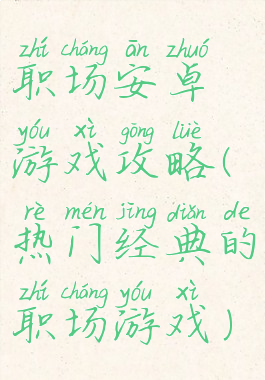 zhí chǎng ān zhuó
职场安卓
yóu xì gōng lüè
游戏攻略(
rè mén jīng diǎn de
热门经典的
zhí chǎng yóu xì
职场游戏)